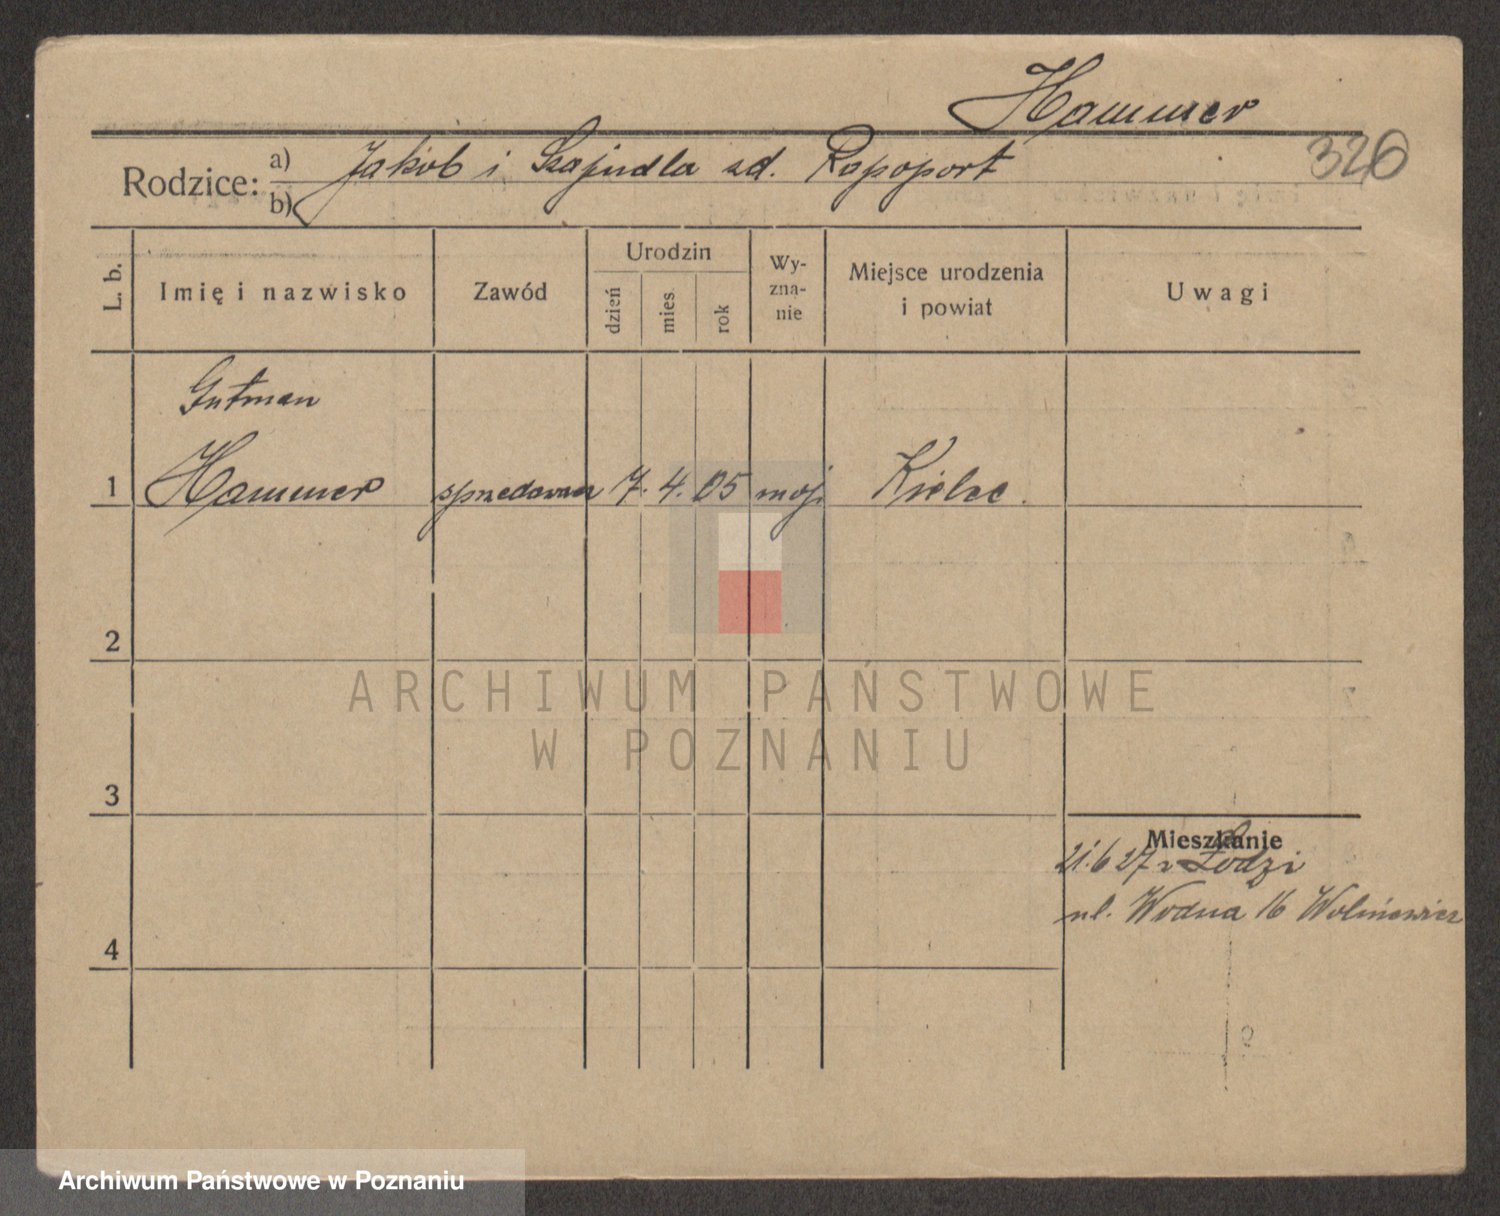 Hammer
320
Rodzice: a) Jakób i Szajndla zd. Rapoport
b)
L. b. Imię i nazwisko Zawód Urodzin dzień mies. rok Wy-zna-nie Miejsce urodzenia i powiat Uwagi
Gutman
1 Hammer 7. 4. 05 mojż Kielce.
2
3
4
Mieszkanie
21.6 27 z Łodzi
ul. Wodna 16
ARCHIWUM PAŃSTWOWE
W POZNANIU
Archiwum Państwowe w Poznaniu